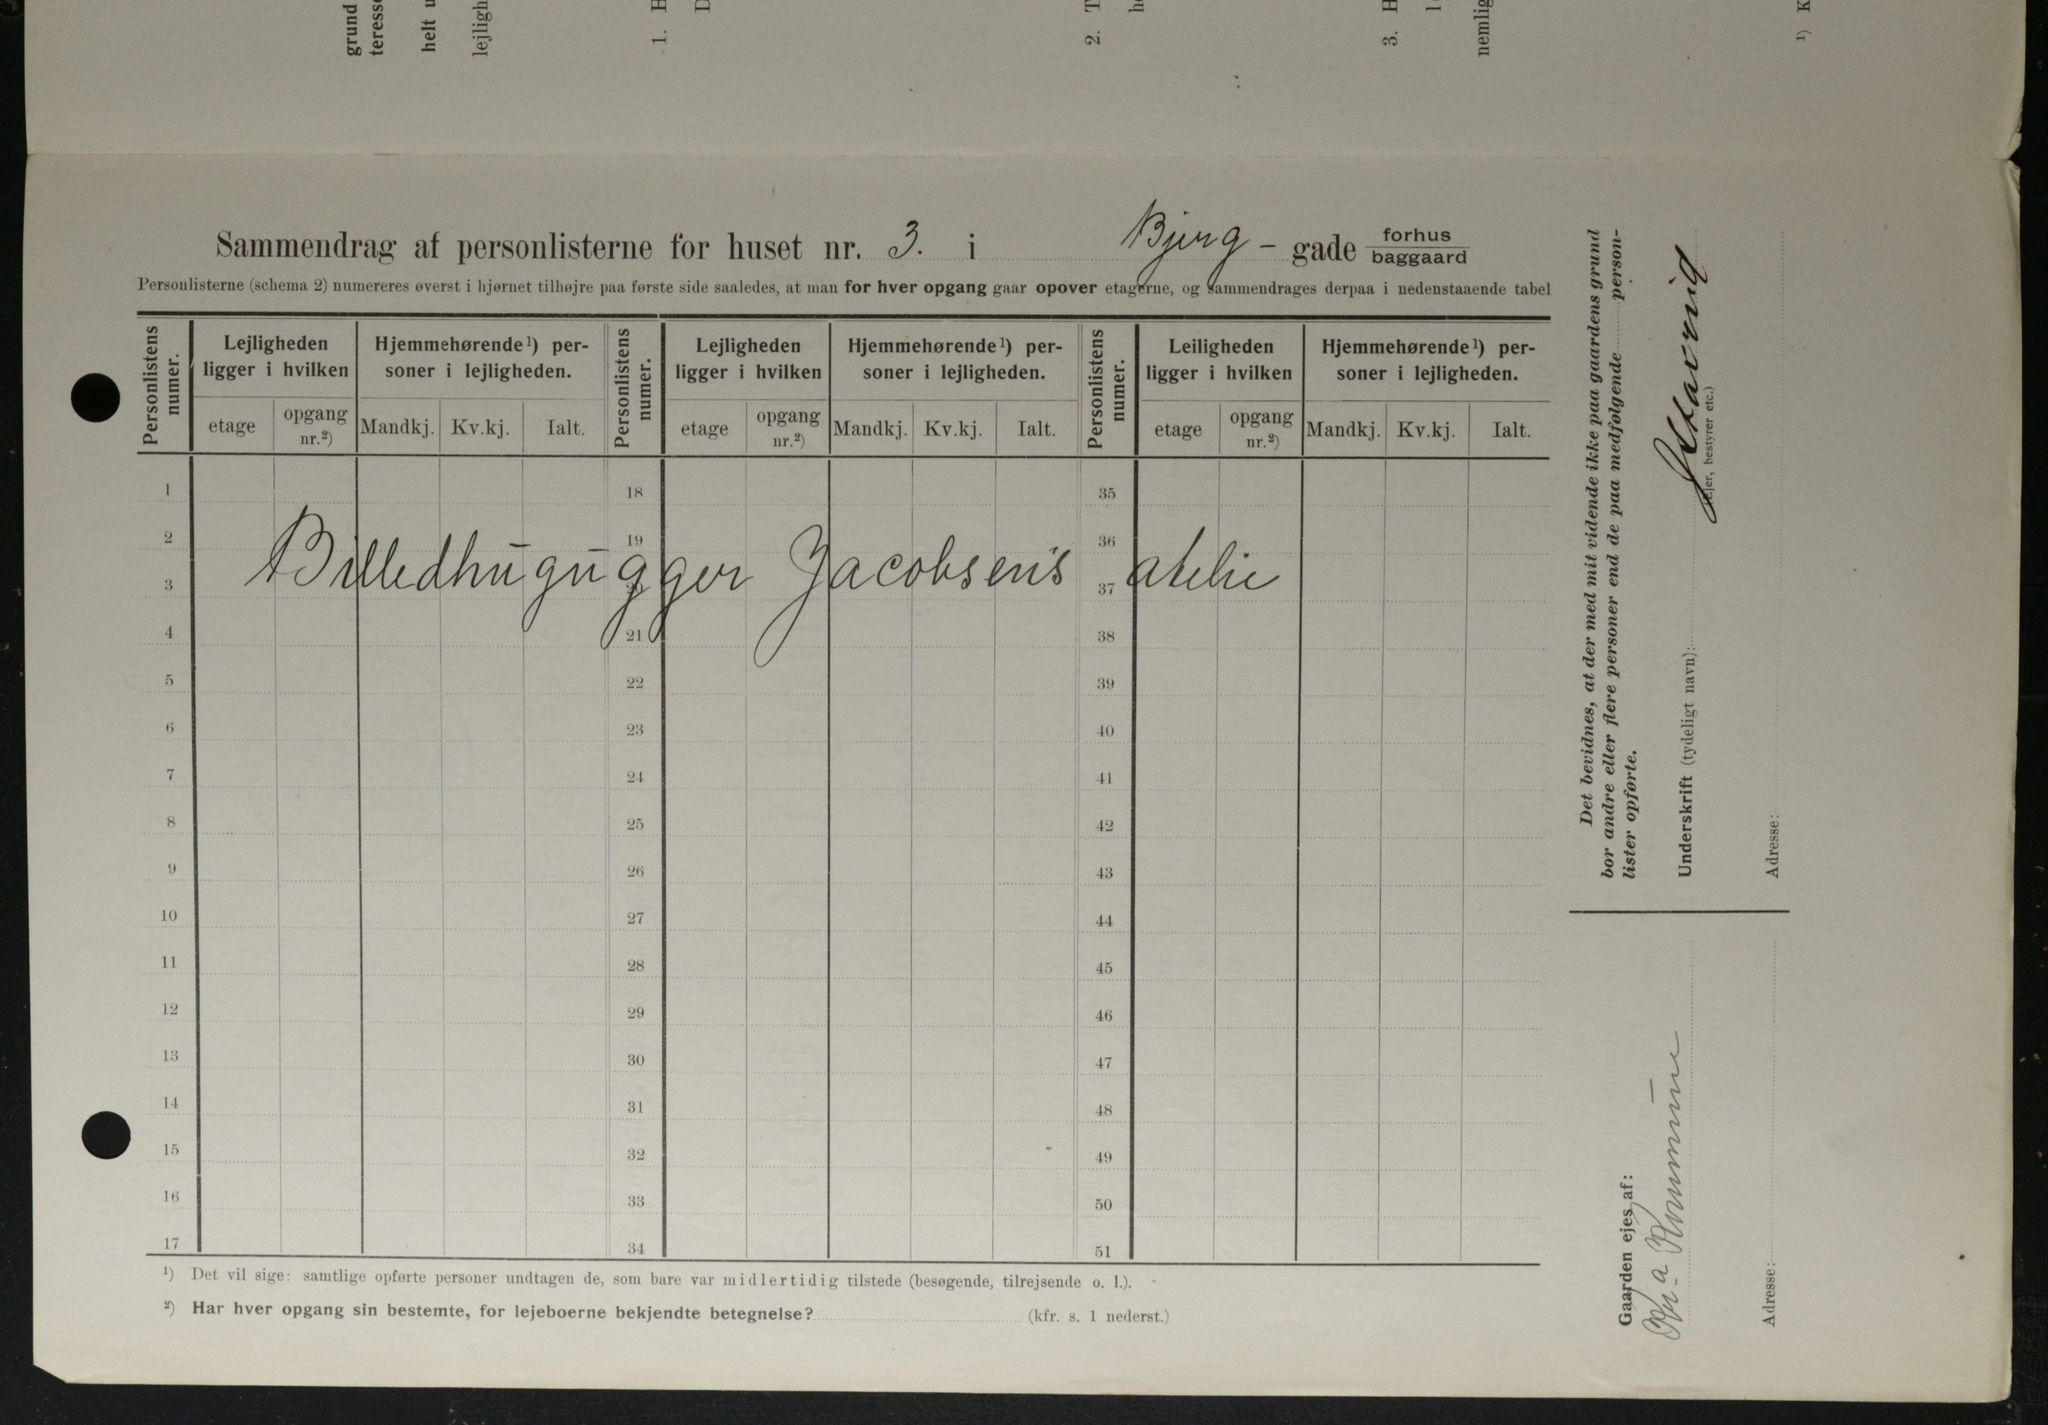 grund
teresse
helt u
lejligh
1. H
D
2. T
he
3. H
l
nemlig
¹) K
Sammendrag af personlisterne for huset nr. 3. i Bjerg - gade forhus baggaard
Personlisterne (schema 2) numereres øverst i hjørnet tilhøjre paa første side saaledes, at man for hver opgang gaar opover etagerne, og sammendrages derpaa i nedenstaaende tabel
Personlistens numer. Lejligheden ligger i hvilken Hjemmehørende¹) personer i lejligheden. Personlistens numer. Lejligheden ligger i hvilken Hjemmehørende¹) personer i lejligheden. Personlistens numer. Leiligheden ligger i hvilken Hjemmehørende¹) personer i lejligheden.
etage opgang nr.²) Mandkj. Kv.kj. Ialt. etage opgang nr.²) Mandkj. Kv.kj. Ialt. etage opgang nr.²) Mandkj. Kv.kj. Ialt.
1 18 35
2 19 36
Billedhugugger Jacobsen's atelie
3 20 37
4 21 38
5 22 39
6 23 40
7 24 41
8 25 42
9 26 43
10 27 44
11 28 45
12 29 46
13 30 47
14 31 48
15 32 49
16 33 50
17 34 51
¹) Det vil sige: samtlige opførte personer undtagen de, som bare var midlertidig tilstede (besøgende, tilrejsende o. l.).
²) Har hver opgang sin bestemte, for lejeboerne bekjendte betegnelse? (kfr. s. 1 nederst.)
Det bevidnes, at der med mit vidende ikke paa gaardens grund
bor andre eller flere personer end de paa medfølgende person-
lister opførte.
Underskrift (tydeligt navn):
(Ejer, bestyrer etc.)
Adresse:
Gaarden ejes af:
Kr.a Kommune
Adresse: